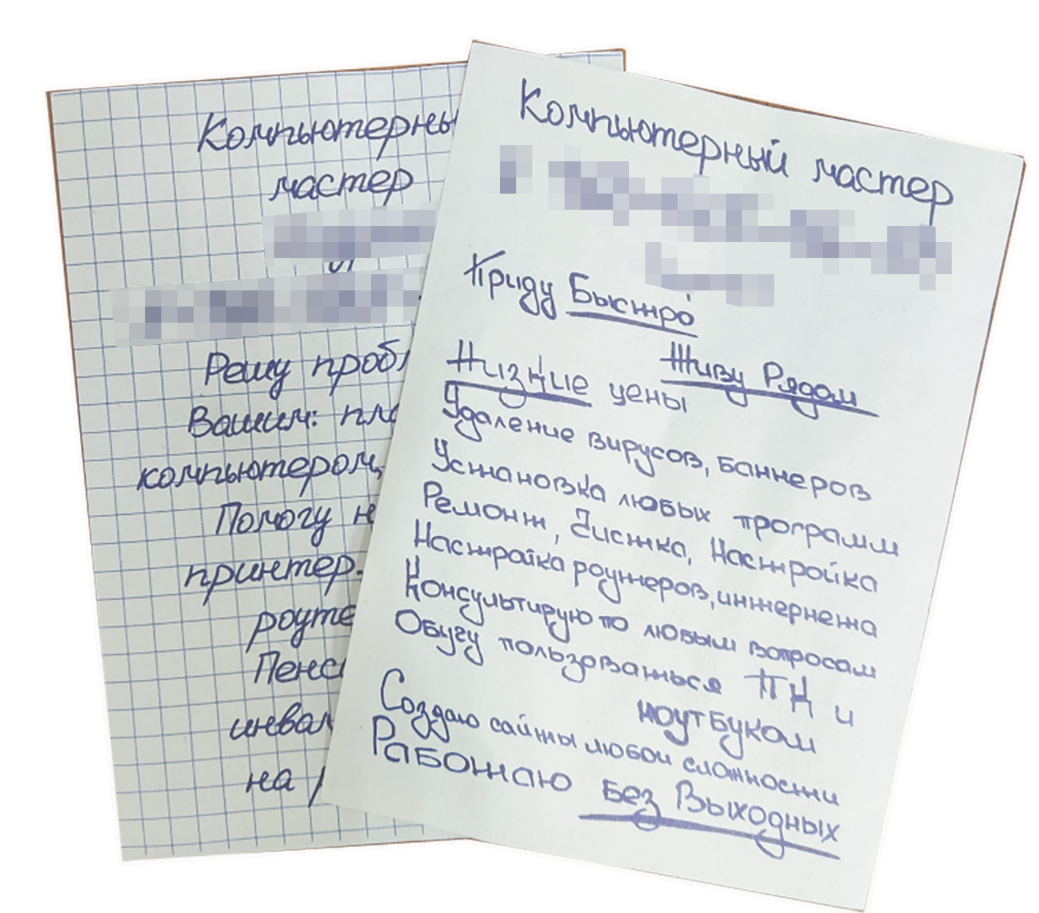 Компьютерны
мастер
и
Решу пробл
Вашим: пл
компьютером,
Помогу н
принтер.
роуте
Пенс
инвал
на р
Компьютерный мастер
Приду Быстро
Живу Рядом
Низкие цены
Удаление вирусов, баннеров
Установка любых программ
Ремонт, Чистка, Настройка
Настройка роутеров, интернета
Консультирую по любым вопросам
Обучу пользоваться ПК и
ноутбуком
Создаю сайты любой сложности
Работаю Без Выходных